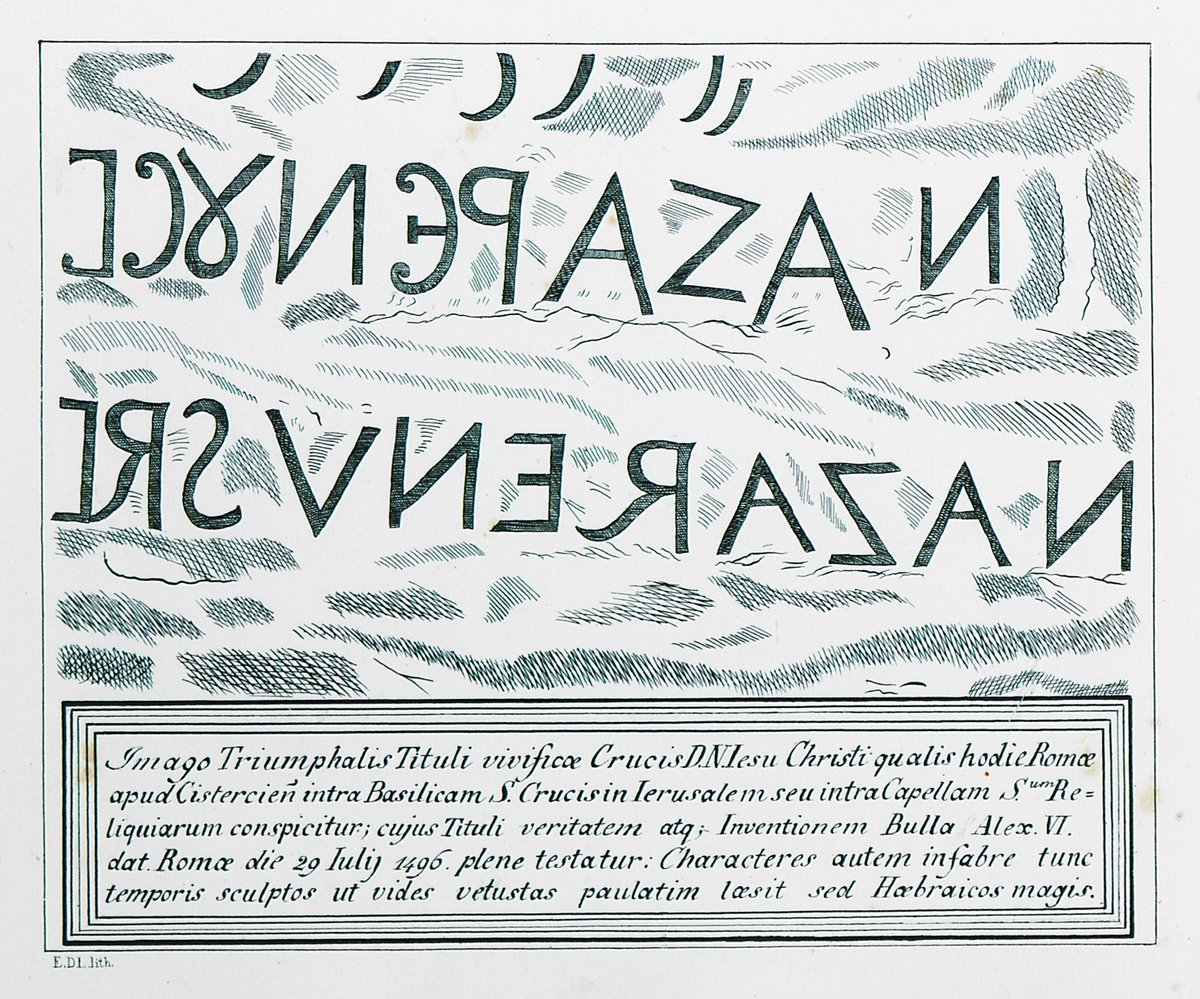 NAZAPЄNȢCI
NAZARENVSRI
Imago Triumphalis Tituli vivificæ Crucis D.N. Iesu Christi qualis hodie Romæ
apud Cisterciens̃ intra Basilicam S. Crucis in Ierusalem seu intra Capellam S.um Re=
liquiarum conspicitur; cujus Tituli veritatem atq; Inventionem Bulla Alex. VI.
dat. Romæ die 29 Iulij 1496. plene testatur: Characteres autem infabre tunc
temporis sculptos ut vides vetustas paulatim læsit sed Hæbraicos magis.
E.D.I. lith.